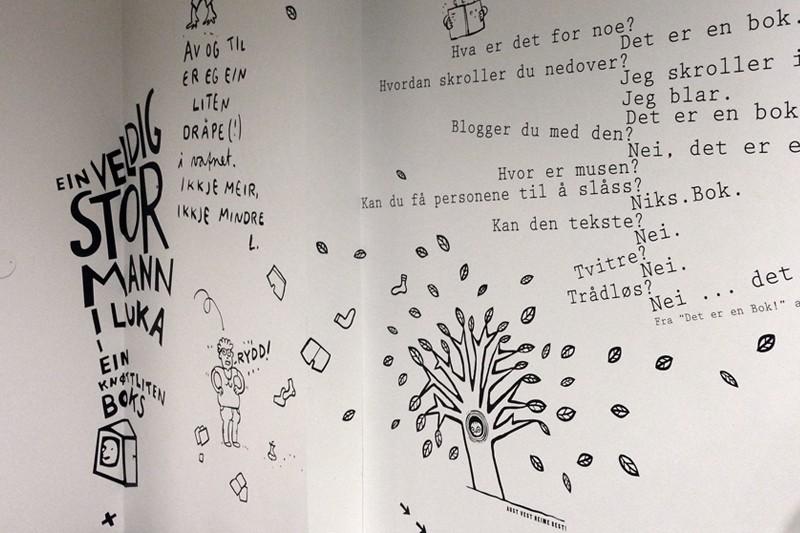 EIN VELDIG
STOR
MANN
I LUKA
I
EIN
KNØTTLITEN
BOKS
AV OG TIL
ER EG EIN
LITEN
DRÅPE(!)
i vatnet.
IKKJE MEIR,
IKKJE MINDRE
L.
RYDD!
Hva er det for noe?
Det er en bok.
Hvordan skroller du nedover?
Jeg skroller i
Jeg blar.
Det er en bok
Blogger du med den?
Nei, det er e
Hvor er musen?
Kan du få personene til å slåss?
Niks.Bok.
Kan den tekste?
Nei.
Tvitre?
Nei.
Trådløs?
Nei ... det
Fra "Det er en Bok!" a
AUST VEST HEIME BEST!